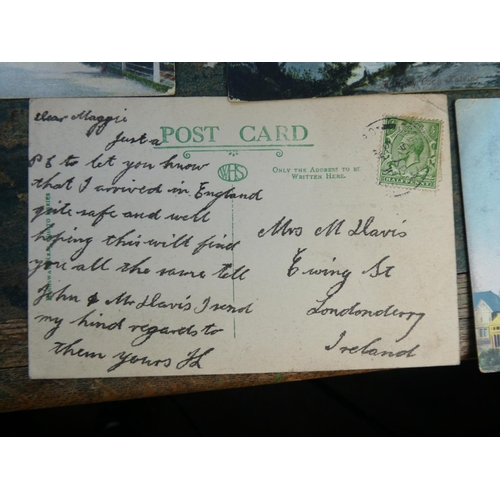 Dear Maggie
Just a
P C to let you know
that I arrived in England
quite safe and well
hoping this will find
you all the same tell
John & Mr Davis I send
my kind regards to
them yours
POST CARD
WHS
ONLY THE ADDRESS TO BE
WRITTEN HERE.
Mrs M Davis
Ewing St
Londonderry
Ireland